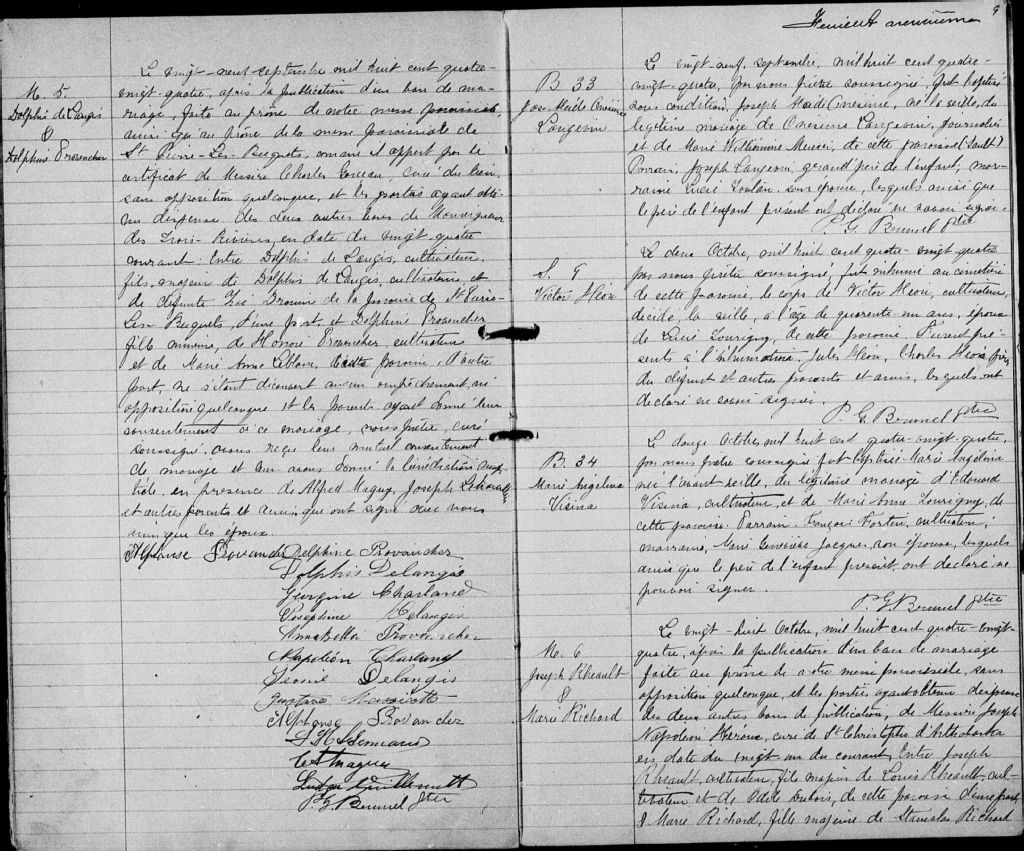 M. 5
Dolphis de Langis
&
Delphine Provencher
Le vingt-neuf septembre mil huit cent quatre-
vingt-quatre, après la publication d'un ban de ma-
riage, faite au prône de notre messe paroissiale,
ainsi qu'au prône de la messe paroissiale de
St Pierre-Les-Becquets, comme il appert par le
certificat de Messire Charles curé du lieu,
sans opposition quelconque, et les parties ayant obte-
nu dispense des deux autres bans de Monseigneur
des Trois-Rivières, en date du vingt-quatre
courant: Entre Dolphis de Langis, cultivateur,
fils majeur de Dolphis de Langis, cultivateur, et
de défunte Zoé de la paroisse de St Pierre-
Les-Becquets, d'une part, et Delphine Provencher
fille mineure, de Honoré Provencher, cultivateur
et de Marie Anne Leblanc, de cette paroisse, d'autre
part, ne s'étant découvert aucun empêchement, ni
opposition quelconque et les parents ayant donné leur
consentement à ce mariage, nous prêtre, curé
soussigné, avons reçu leur mutuel consentement
de mariage et leur avons donné la bénédiction nup-
tiale, en présence de Alfred Magny, Joseph
et autres parents et amis, qui ont signé avec nous
ainsi que les époux.
Alphonse Provancher Delphine Provancher
Dolphis Delangis
Georgine Charland
Joséphine Delangis
Annabella Provencher
Napoléon Charland
Delangis
Gustave
Alphonse Provancher
P. G. Brunel ptre
9
Feuillet neuvième
B. 33
Jos. Alcide Onésime
Langevin
Le vingt-neuf, septembre, mil huit cent quatre-
vingt-quatre, par nous prêtre soussigné, fut baptisé
sous condition, Joseph Alcide Onésime, né la veille, du
légitime mariage de Onésime Langevin, journalier
et de Marie Philomène Mercier, de cette paroisse (Sault)
Parrain, Joseph Langevin, grand-père de l'enfant; mar-
raine Lucie son épouse, lesquels ainsi que
le père de l'enfant présent ont déclaré ne savoir signer.
P. G. Brunel ptre
S. 9
Victor Héon
Le deux Octobre, mil huit cent quatre-vingt-quatre
par nous prêtre soussigné, fut inhumé au cimetière
de cette paroisse, le corps de Victor Héon, cultivateur,
décédé, la veille, à l'âge de quarante un ans, époux
de Lucie Tourigny, de cette paroisse. Furent pré-
sents à l'inhumation Jules Héon, Charles Héon frère
du défunt et autres parents et amis, lesquels ont
déclaré ne savoir signer.
P. G. Brunel ptre
B. 34
Marie Angelina
Visina
Le douze Octobre, mil huit cent quatre-vingt-quatre,
par nous prêtre soussigné fut baptisée Marie Angelina
née l'avant veille, du légitime mariage d'Edouard
Visina, cultivateur, et de Marie Anne Tourigny, de
cette paroisse. Parrain François Fortier, cultivateur;
marraine, Marie Geneviève Jacques, son épouse, lesquels
ainsi que le père de l'enfant présent, ont déclaré ne
pouvoir signer.
P. G. Brunel ptre
M. 6
Joseph Rheault
&
Marie Richard
Le vingt-huit Octobre, mil huit cent quatre-vingt-
quatre, après la publication d'un ban de mariage
faite au prône de notre messe paroissiale, sans
opposition quelconque, et les parties ayant obtenu dispense
des deux autres bans de publication, de Messire Joseph
Napoléon Héroux, curé de St Christophe d'Arthabaska
en date du vingt un du courant, Entre Joseph
Rheault, cultivateur, fils majeur de Louis Rheault, cul-
tivateur et de Odile Dubois, de cette paroisse d'une part,
& Marie Richard, fille majeure de Stanislas Richard